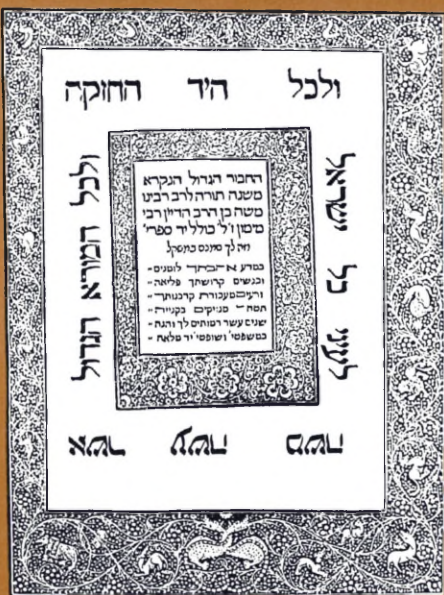 ולכל היד החזקה
ולכל המורא הגדול
אשר עשה משה
לעיני כל ישראל
החבור הגדול הנקרא
משנה תורה לרב רבינו
משה בן הרב הדיין רבי
מימון ז'ל' כולל יד ספרי'
וזה לך סימנם במשקל
במדע אהבתך לזמנים
ובנשים קדושתך פליאה
זרעים מעבודת קרבנותך
בקנייה
שנים עשר לך והנה
במשפטי' ושופטי' יד מלאה